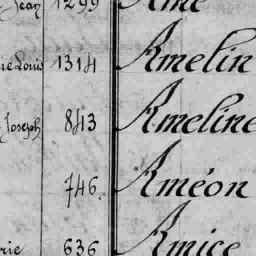 Jean 1299 Amé
Louis 1314 Amelin
Joseph 843 Ameline
746 Améon
rie 636 Amice